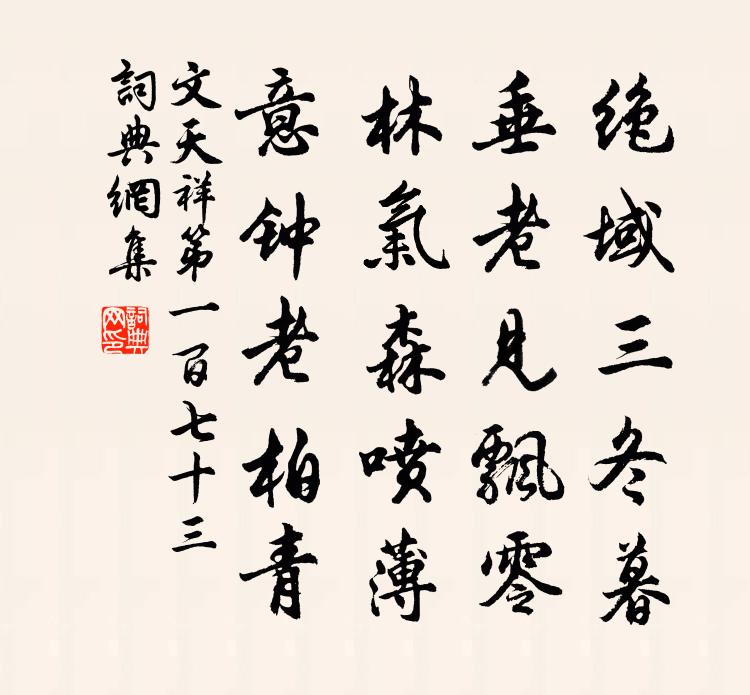 绝域三冬暮
垂老见飄零
林氣森喷薄
意钟老柏青
文天祥第一百七十三
詞典網集
詞典网印